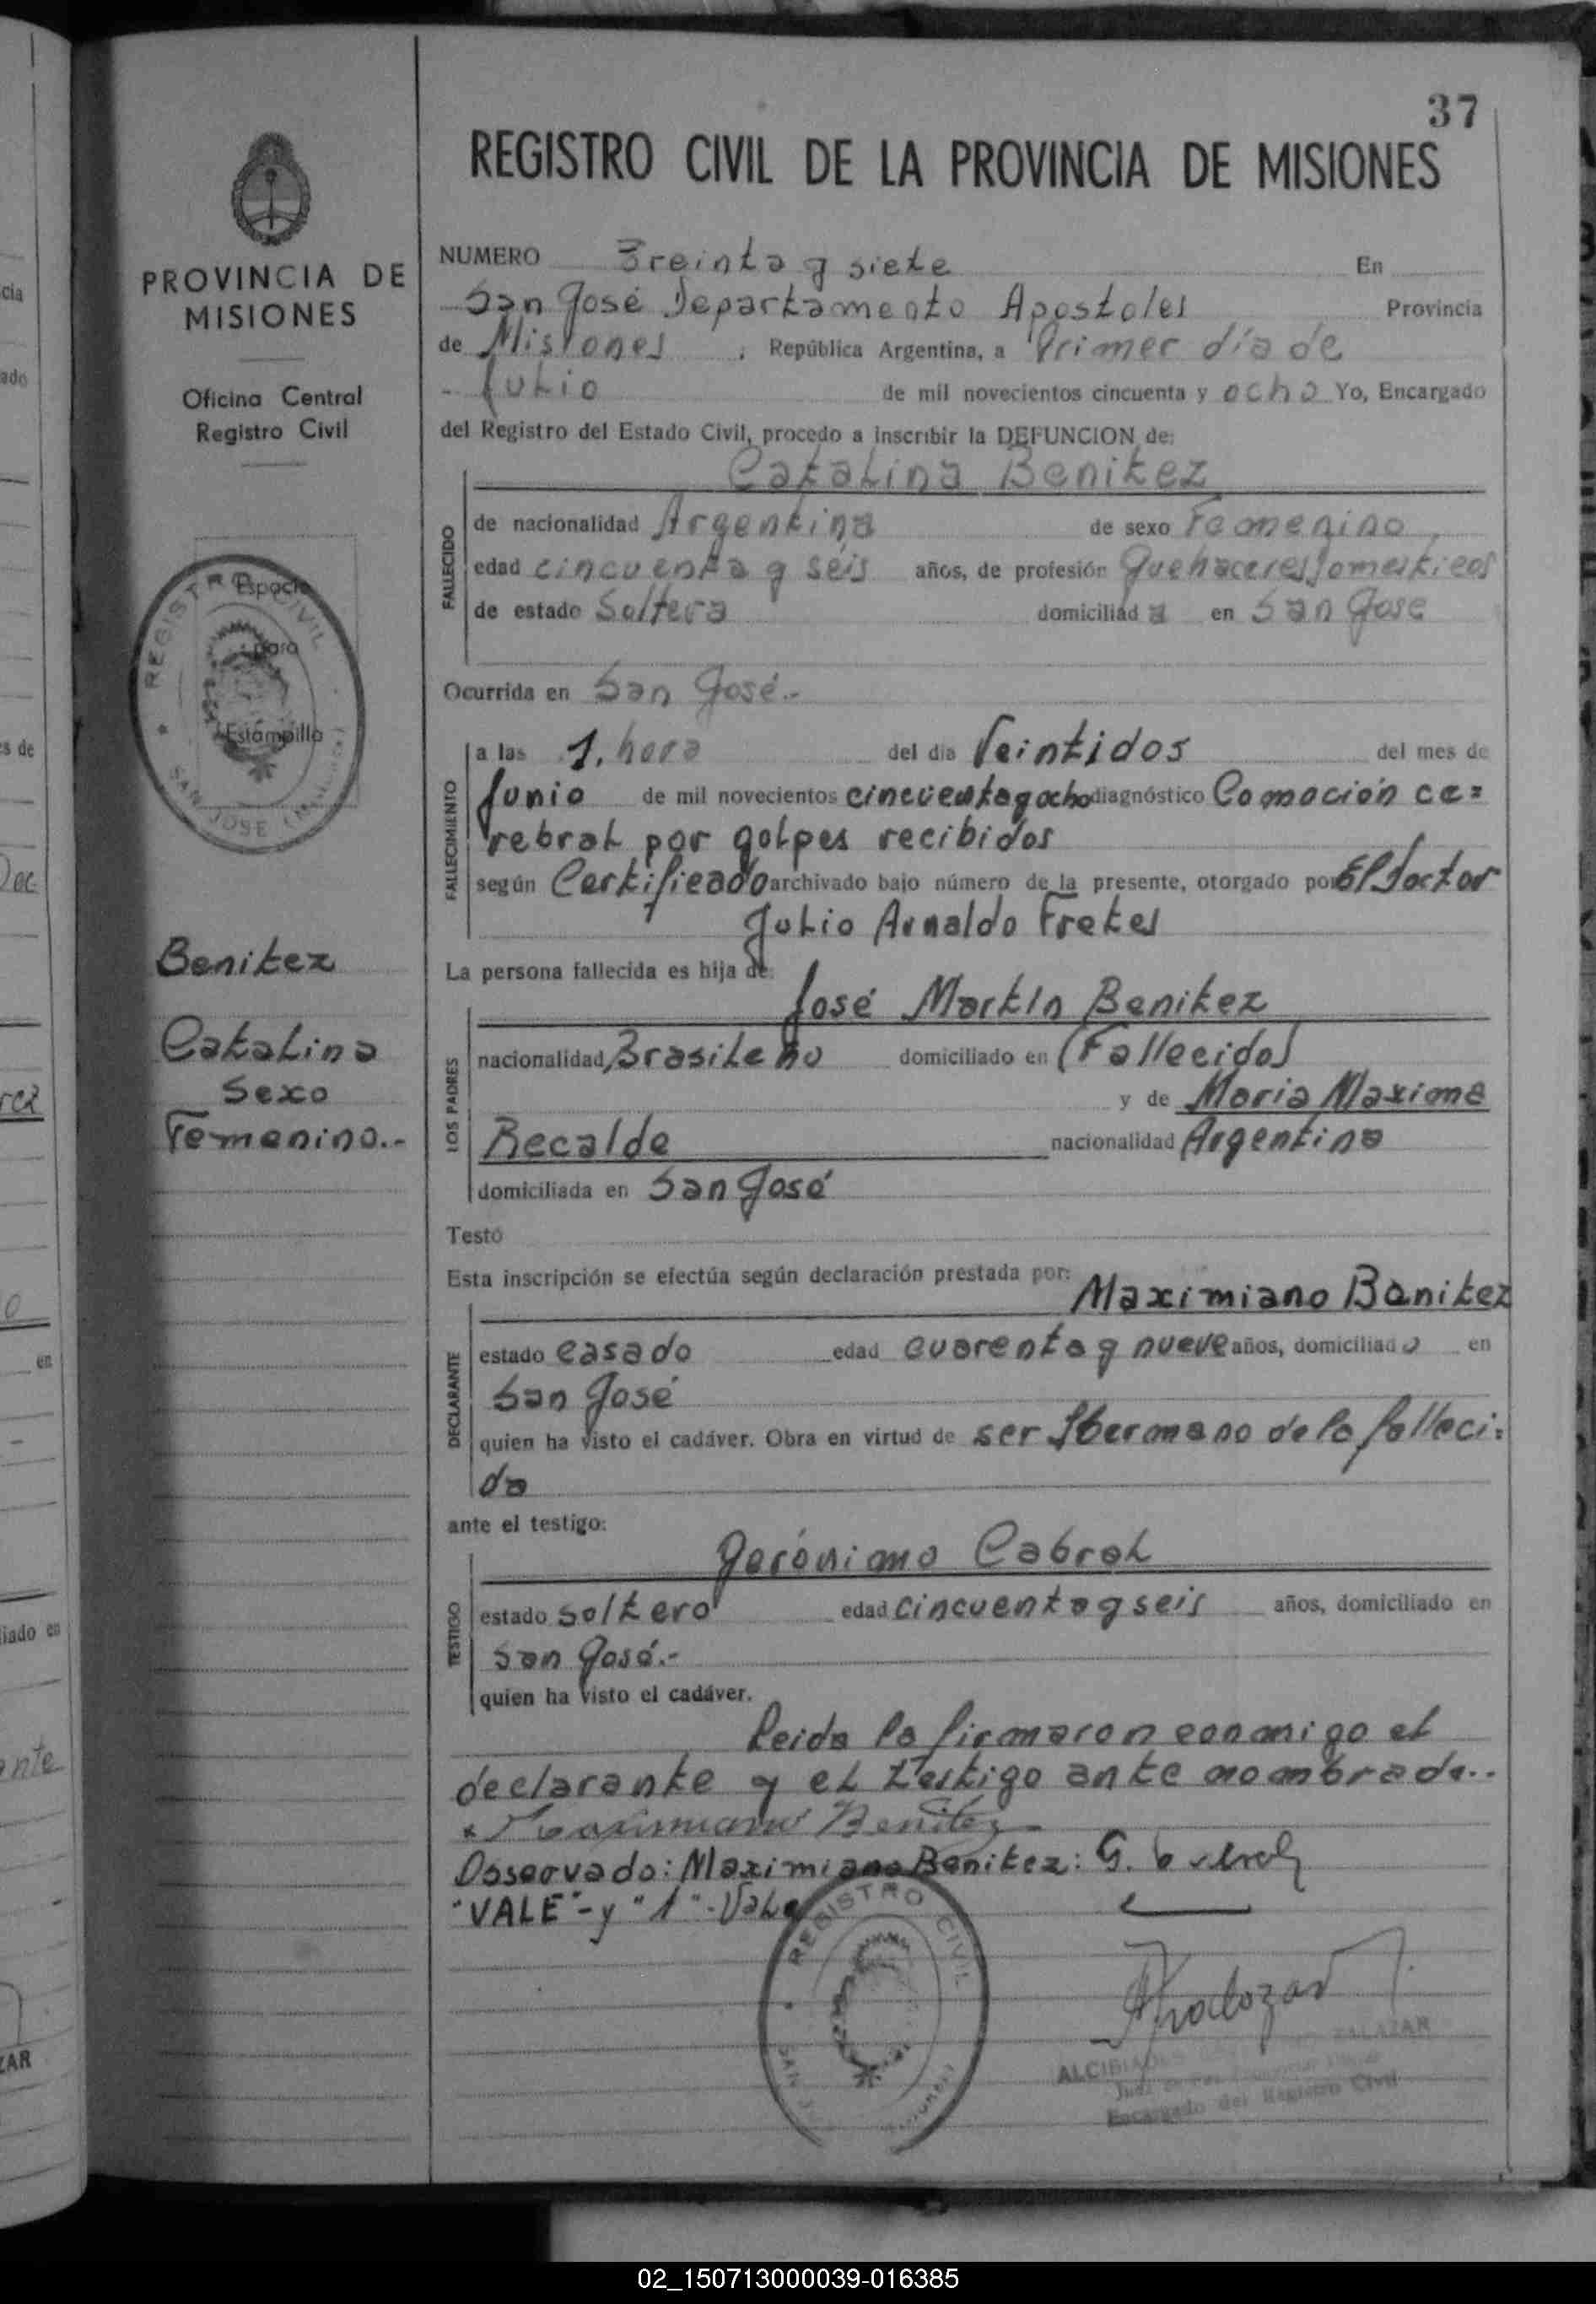 37
REGISTRO CIVIL DE LA PROVINCIA DE MISIONES
PROVINCIA DE
MISIONES
Oficina Central
Registro Civil
Espacio
para
Estampilla
REGISTRO CIVIL
SAN JOSE (Misiones)
Benitez
Catalina
Sexo
Femenino.-
NUMERO Treinta y siete En
San José Departamento Apostoles Provincia
de Misiones , República Argentina, a Primer día de
Julio de mil novecientos cincuenta y ocho Yo, Encargado
del Registro del Estado Civil, procedo a inscribir la DEFUNCION de:
Catalina Benitez
FALLECIDO
de nacionalidad Argentina de sexo Femenino
edad cincuenta y séis años, de profesión Quehaceres Domesticos
de estado Soltera domiciliad a en San José
Ocurrida en San José.-
FALLECIMIENTO
a las 1. hora del día Veintidos del mes de
Junio de mil novecientos cincuenta y ocho diagnóstico Comoción ce=
rebral por golpes recibidos
según Certificado archivado bajo número de la presente, otorgado por El Doctor
Julio Arnaldo Fretes
La persona fallecida es hija de:
LOS PADRES
José Martín Benitez
nacionalidad Brasileño domiciliado en (Fallecido)
y de Maria Maxima
Recalde nacionalidad Argentina
domiciliada en San José
Testó
Esta inscripción se efectúa según declaración prestada por:
Maximiano Benitez
DECLARANTE
estado casado edad cuarenta y nueve años, domiciliado en
San José
quien ha visto el cadáver. Obra en virtud de ser Hermano de la falleci=
da
ante el testigo:
Gerónimo Cabral
TESTIGO
estado soltero edad cincuenta y seis años, domiciliado en
San José.-
quien ha visto el cadáver.
Leida la firmaron conmigo el
declarante y el testigo ante nombrado..
x Maximiano Benitez
Osservado: Maximiano Benitez: G. Cabral
"VALE"-y "1"-Vale
REGISTRO CIVIL
SAN
ALCIBIADES ZALAZAR
Encargado del Registro Civil
cia
ado
es de
en
liado en
ente
ZAR
02_150713000039-016385